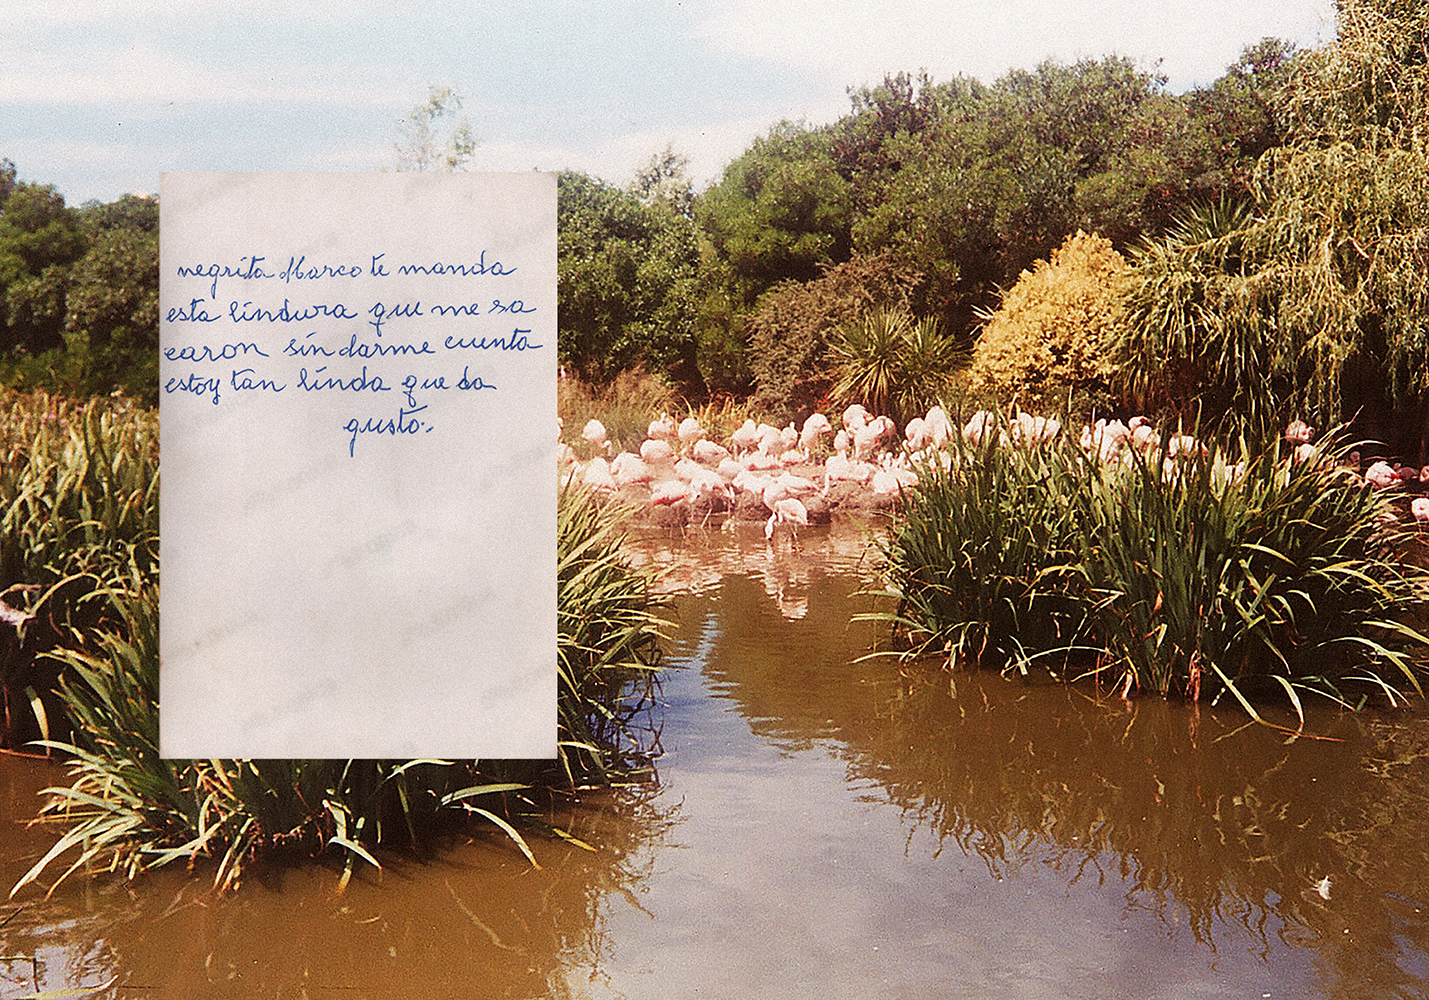 negrita Marco te manda
esta lindura que me sa
caron sin darme cuenta
estoy tan linda que da
gusto.